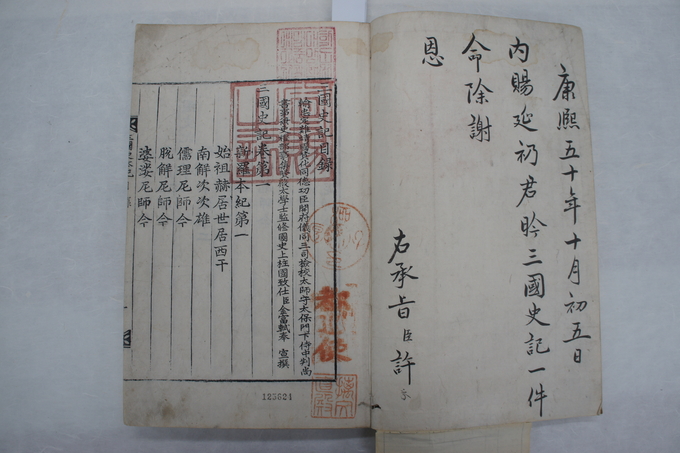 康熙五十年十月初五日
內賜延礽君昑三國史記一件
命除謝
恩
右承旨臣許
三國史記目錄
輸忠定難靖國贊化同德功臣開府儀同三司檢校太師守太保門下侍中判尚
書事兼吏禮部事集賢殿太學士監修國史上柱國致仕臣金富軾奉 宣撰
三國史記卷第一
新羅本紀第一
始祖赫居世居西干
南解次次雄
儒理尼師今
脫解尼師今
婆娑尼師今
125621